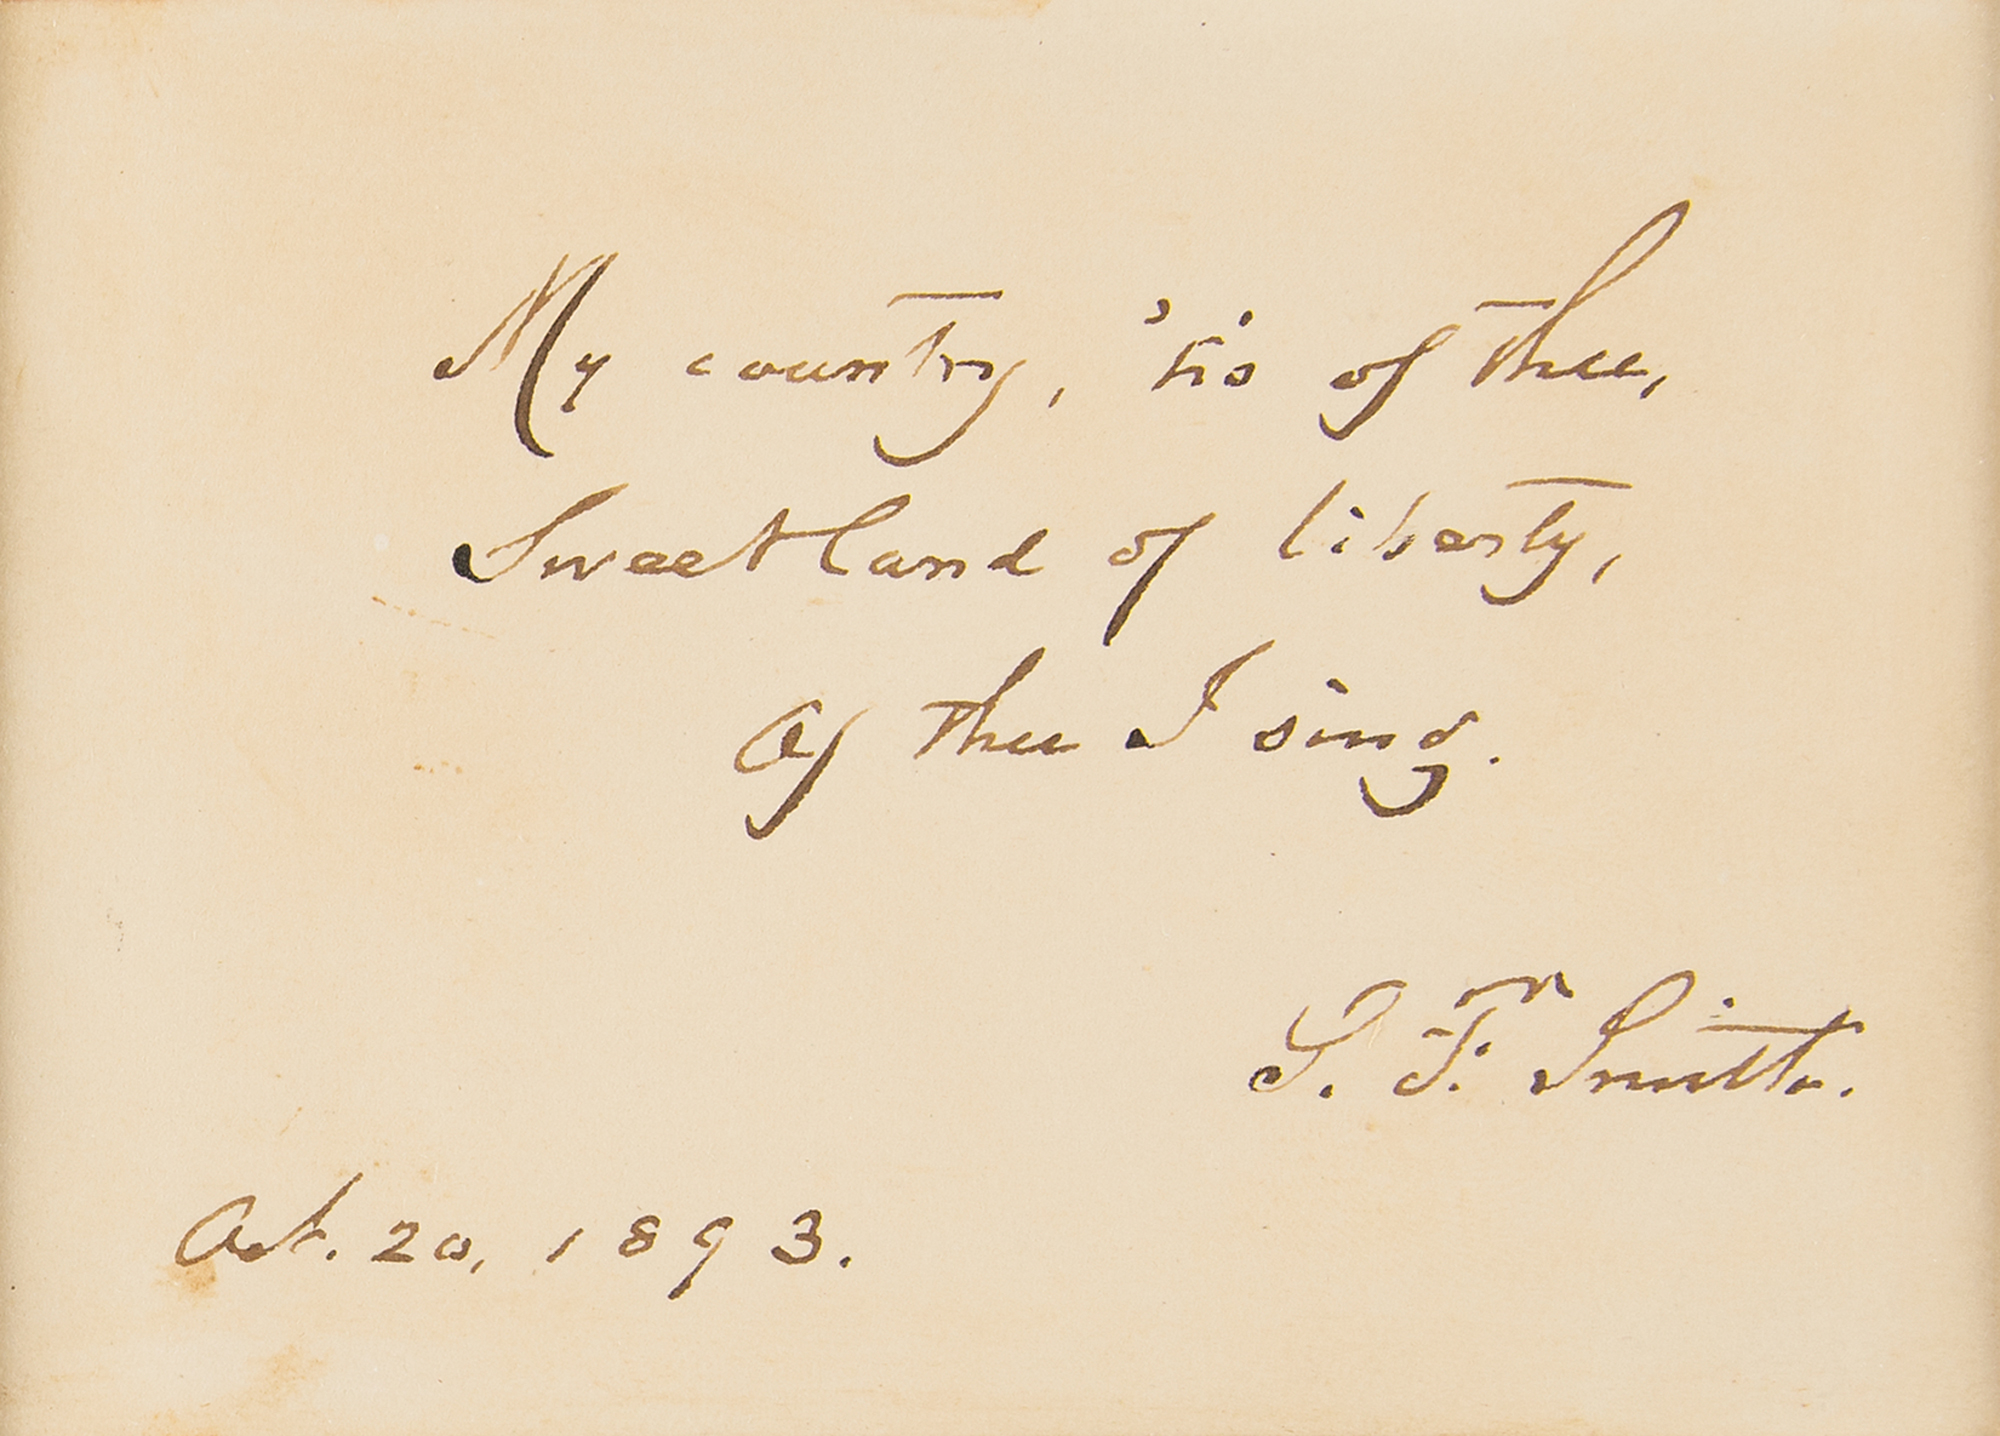 My country, 'tis of thee,
Sweet land of liberty,
Of thee I sing.
S. F. Smith.
Oct. 20, 1893.